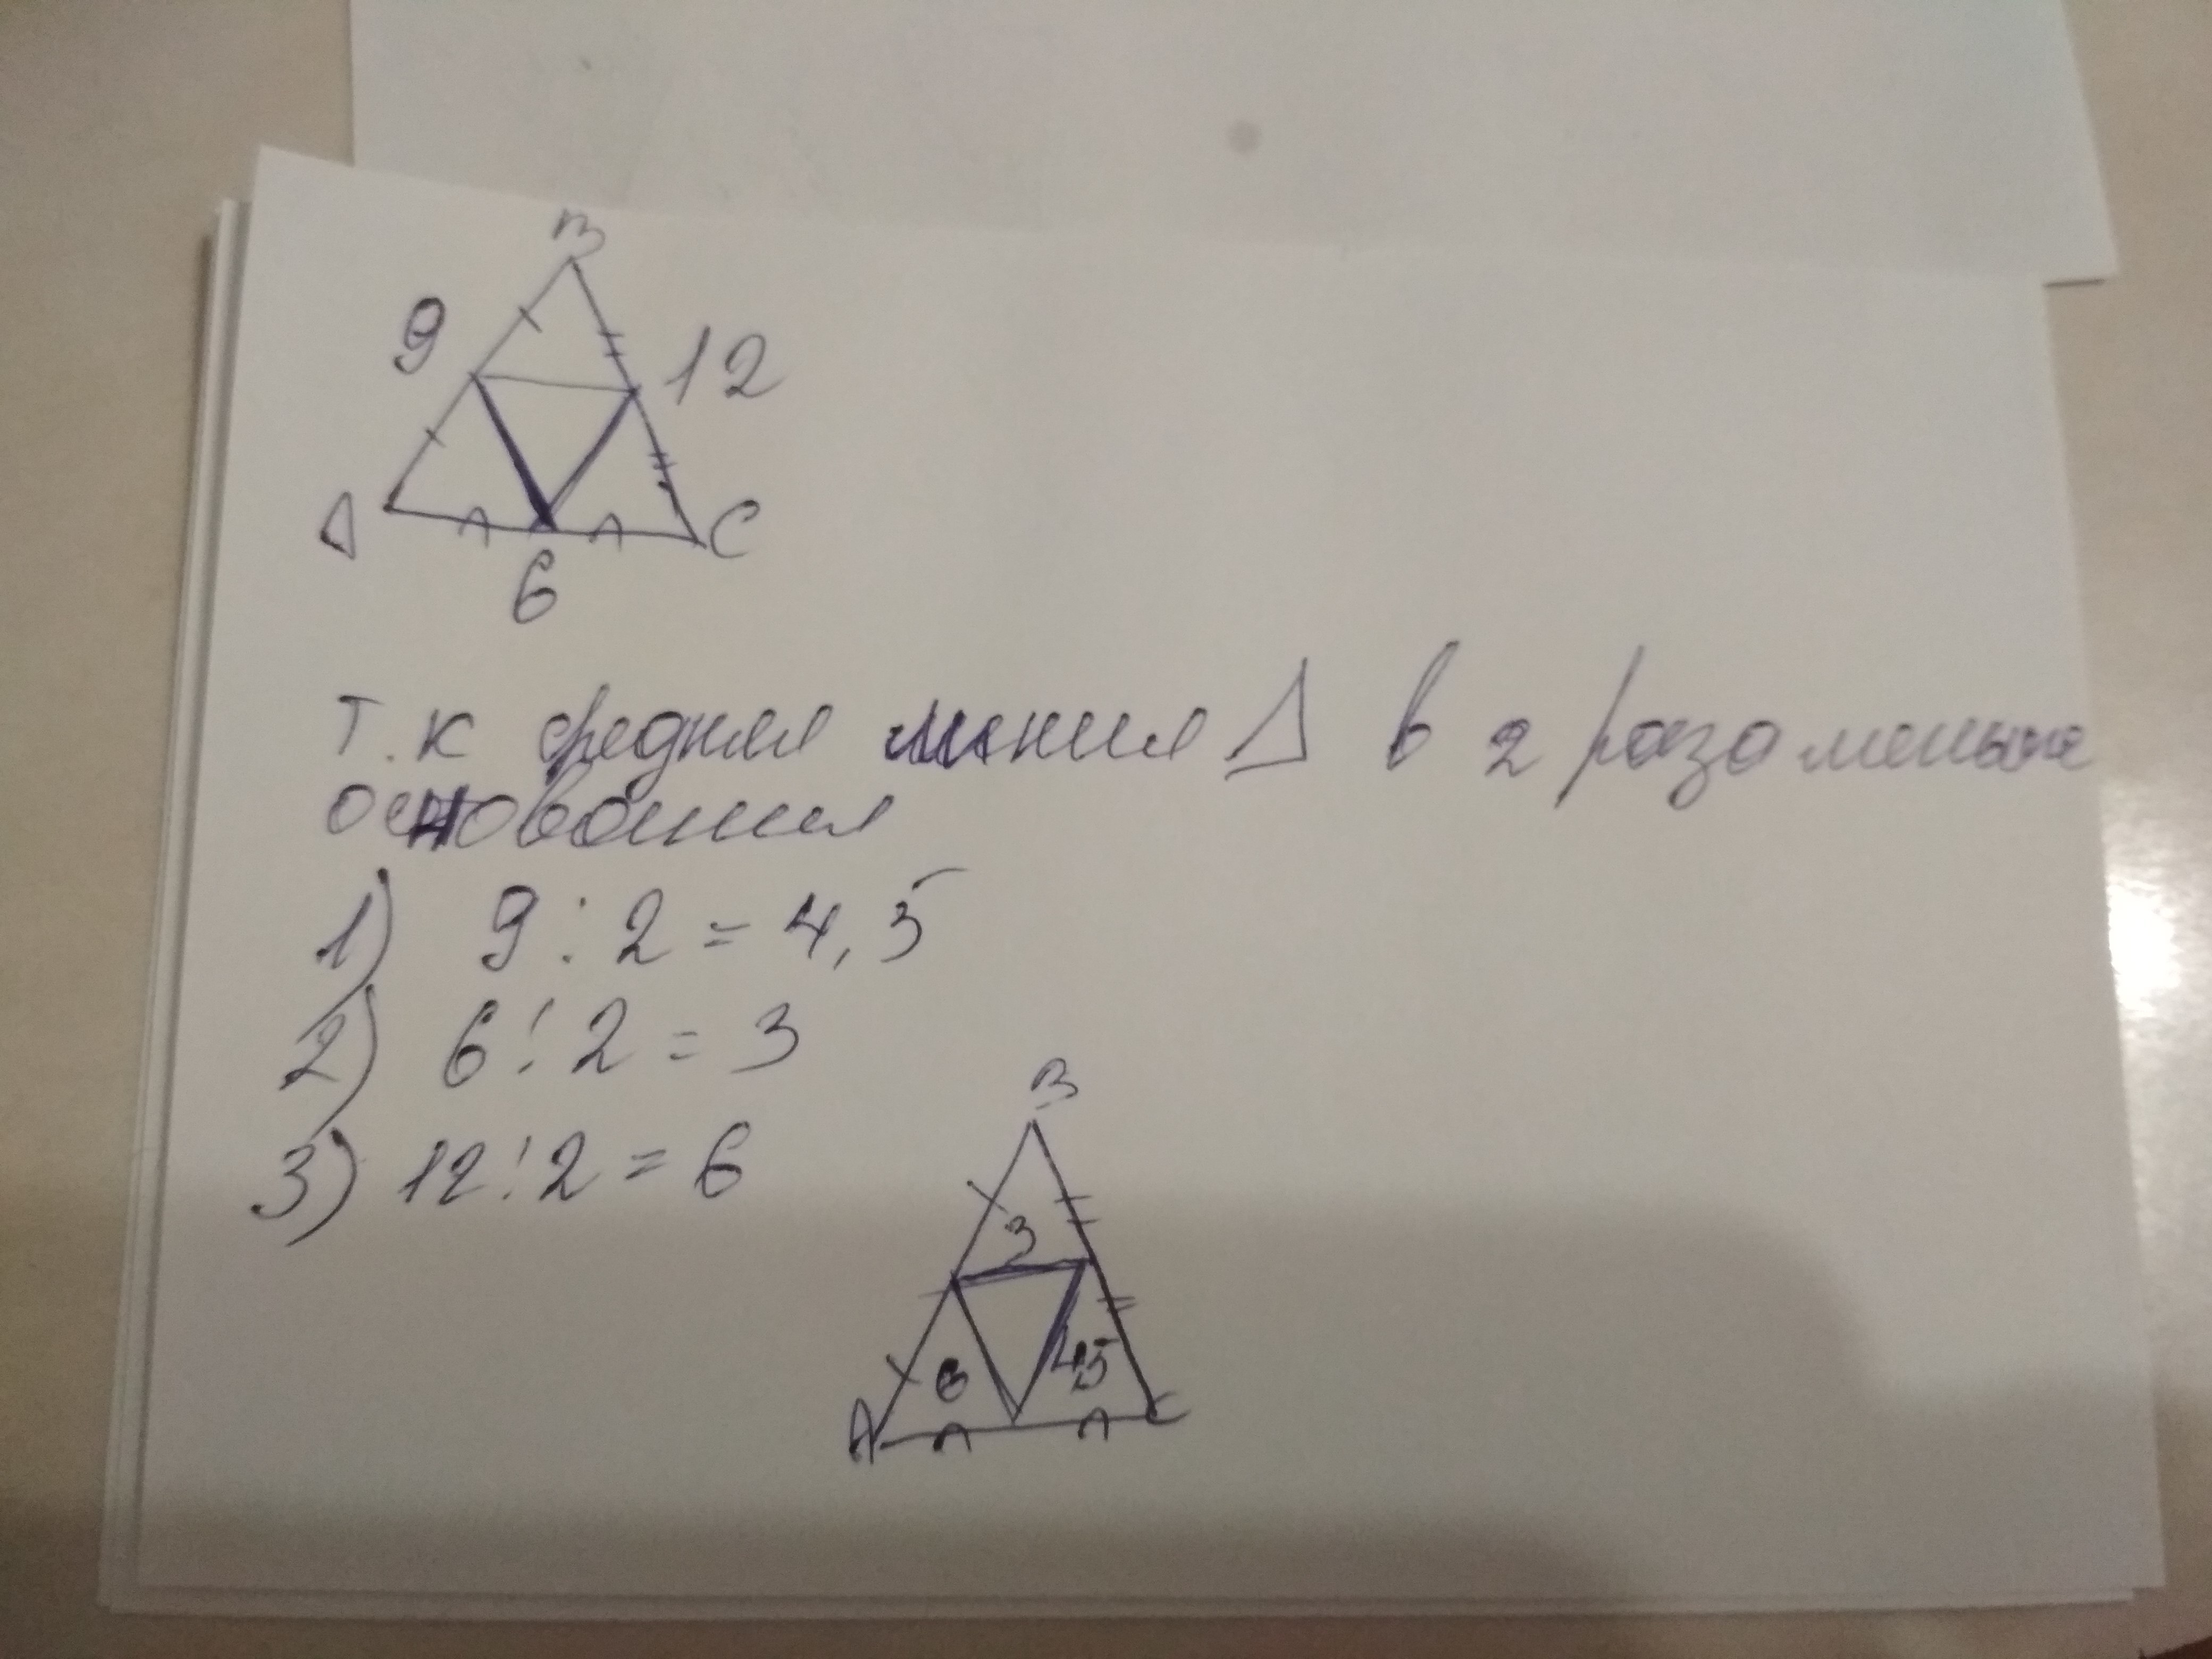 B
9
12
A
C
6
т.к средняя линия △ в 2 раза меньше
основания
1) 9 : 2 = 4,5
2) 6 : 2 = 3
3) 12 : 2 = 6
B
3
6
4,5
A
C